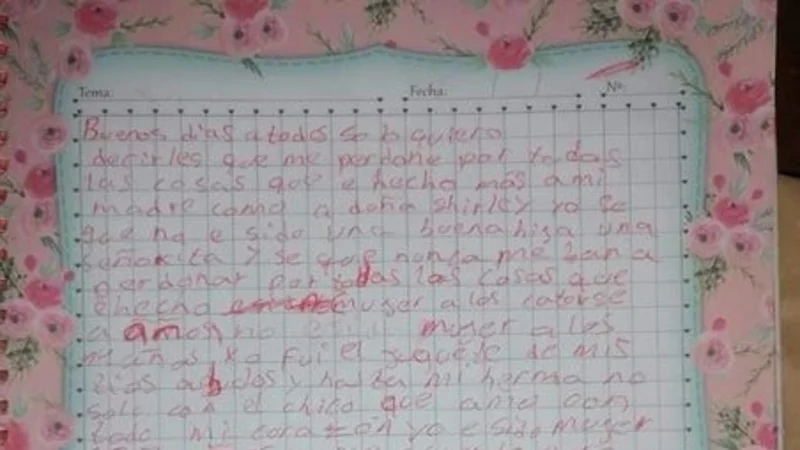 Tema: Fecha: No.
Buenos dias a todos solo quiero
decirles que me perdone por todas
las cosas que e hecho más a mi
madre como a doña Shirley yo se
que no e sido una buena hija una
señorita y se que nunca me ban a
perdonar por todas las cosas que
e hecho mujer a los catorse
a amos no fui mujer a los
mañas yo fui el juguete de mis
tias abudos y hasta mi herma no
solo con el chico que amo con
todo mi corazón yo e sido mujer